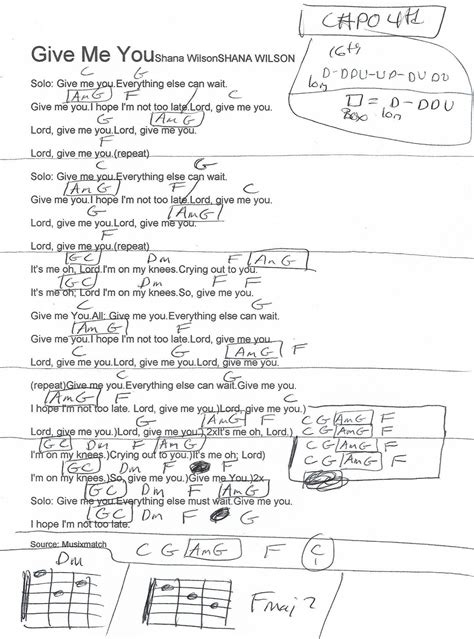 CAPO 4th
Give Me YouShana WilsonSHANA WILSON
16th
D-DDU-UD-DUDU
C G
Solo: Give me you.Everything else can wait.
Am G F C
Give me you.I hope I'm not too late.Lord, give me you.
G Am G
Lord, give me you.Lord, give me you.
F
Lord, give me you.(repeat)
□ = D-DDU
Box
C G
Solo: Give me you.Everything else can wait.
Am G F C
Give me you.I hope I'm not too late.Lord, give me you.
G Am G
Lord, give me you.Lord, give me you.
F
Lord, give me you.(repeat)
G C Dm F Am G
It's me oh, Lord.I'm on my knees.Crying out to you.
G C Dm F F
It's me oh, Lord I'm on my knees.So, give me you.
C G
Give me You.All: Give me you.Everything else can wait.
Am G F C
Give me you.I hope I'm not too late.Lord, give me you.
G Am G F
Lord, give me you.Lord, give me you.Lord, give me you.
C G
(repeat)Give me you.Everything else can wait.Give me you.
Am G F C
I hope I'm not too late. Lord, give me you.)Lord, give me you.)
G Am G F
Lord, give me you.)Lord, give me you.) 2xIt's me oh, Lord.)
G C Dm F Am G
I'm on my knees.)Crying out to you.)It's me oh; Lord)
G C Dm F F
I'm on my knees.)So, give me you.)Give me You.)2x
G C Dm F Am G
Solo: Give me you.Everything else must wait.Give me you.
G C Dm F G
I hope I'm not too late.
C G Am G F
C G Am G F
C G Am G F
C G Am G F
Source: Musixmatch
C G Am G F C
Dm
Fmaj7